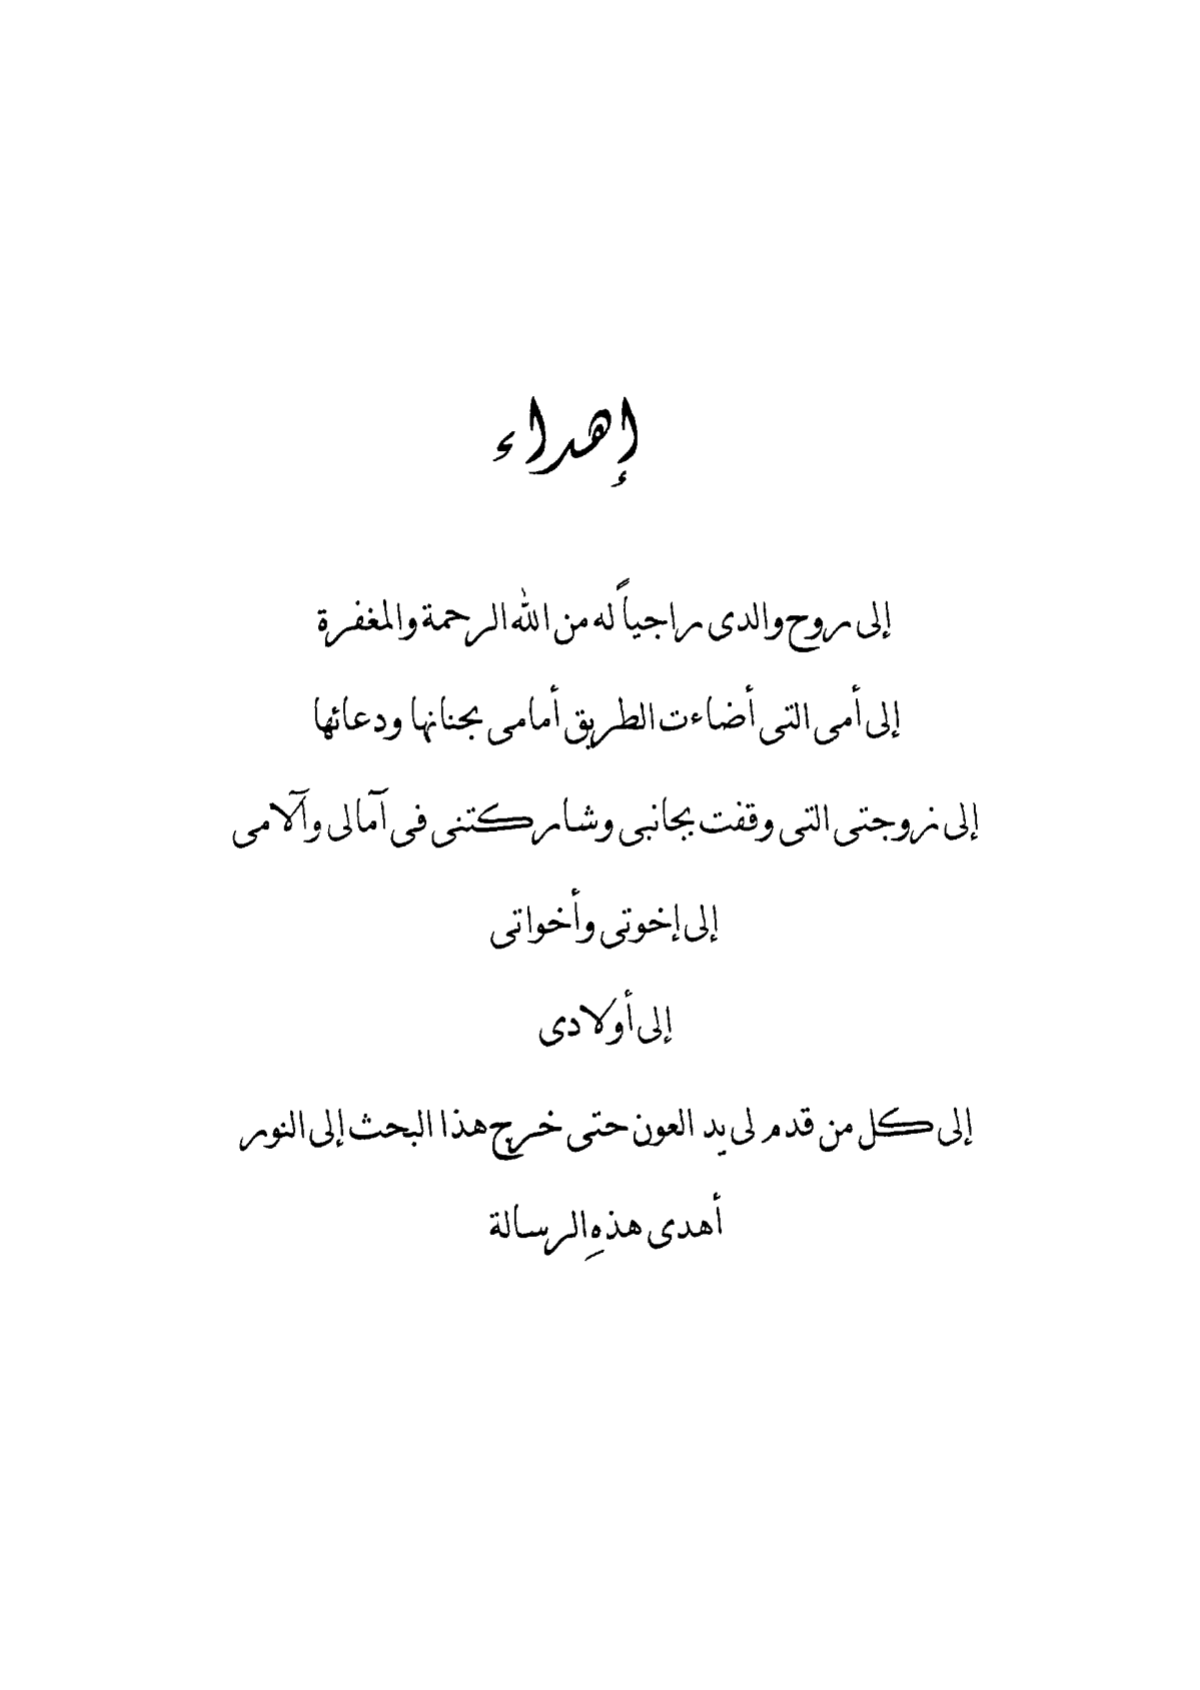 إهداء
إلى روح والدى راجياً له من الله الرحمة والمغفرة
إلى أمى التى أضاءت الطريق أمامى بحنانها ودعائها
إلى زوجتى التى وقفت بجانبى وشاركتنى فى آمالى وآلامى
إلى إخوتى وأخواتى
إلى أولادى
إلى كل من قدم لى يد العون حتى خرج هذا البحث إلى النور
أهدى هذهِ الرسالة